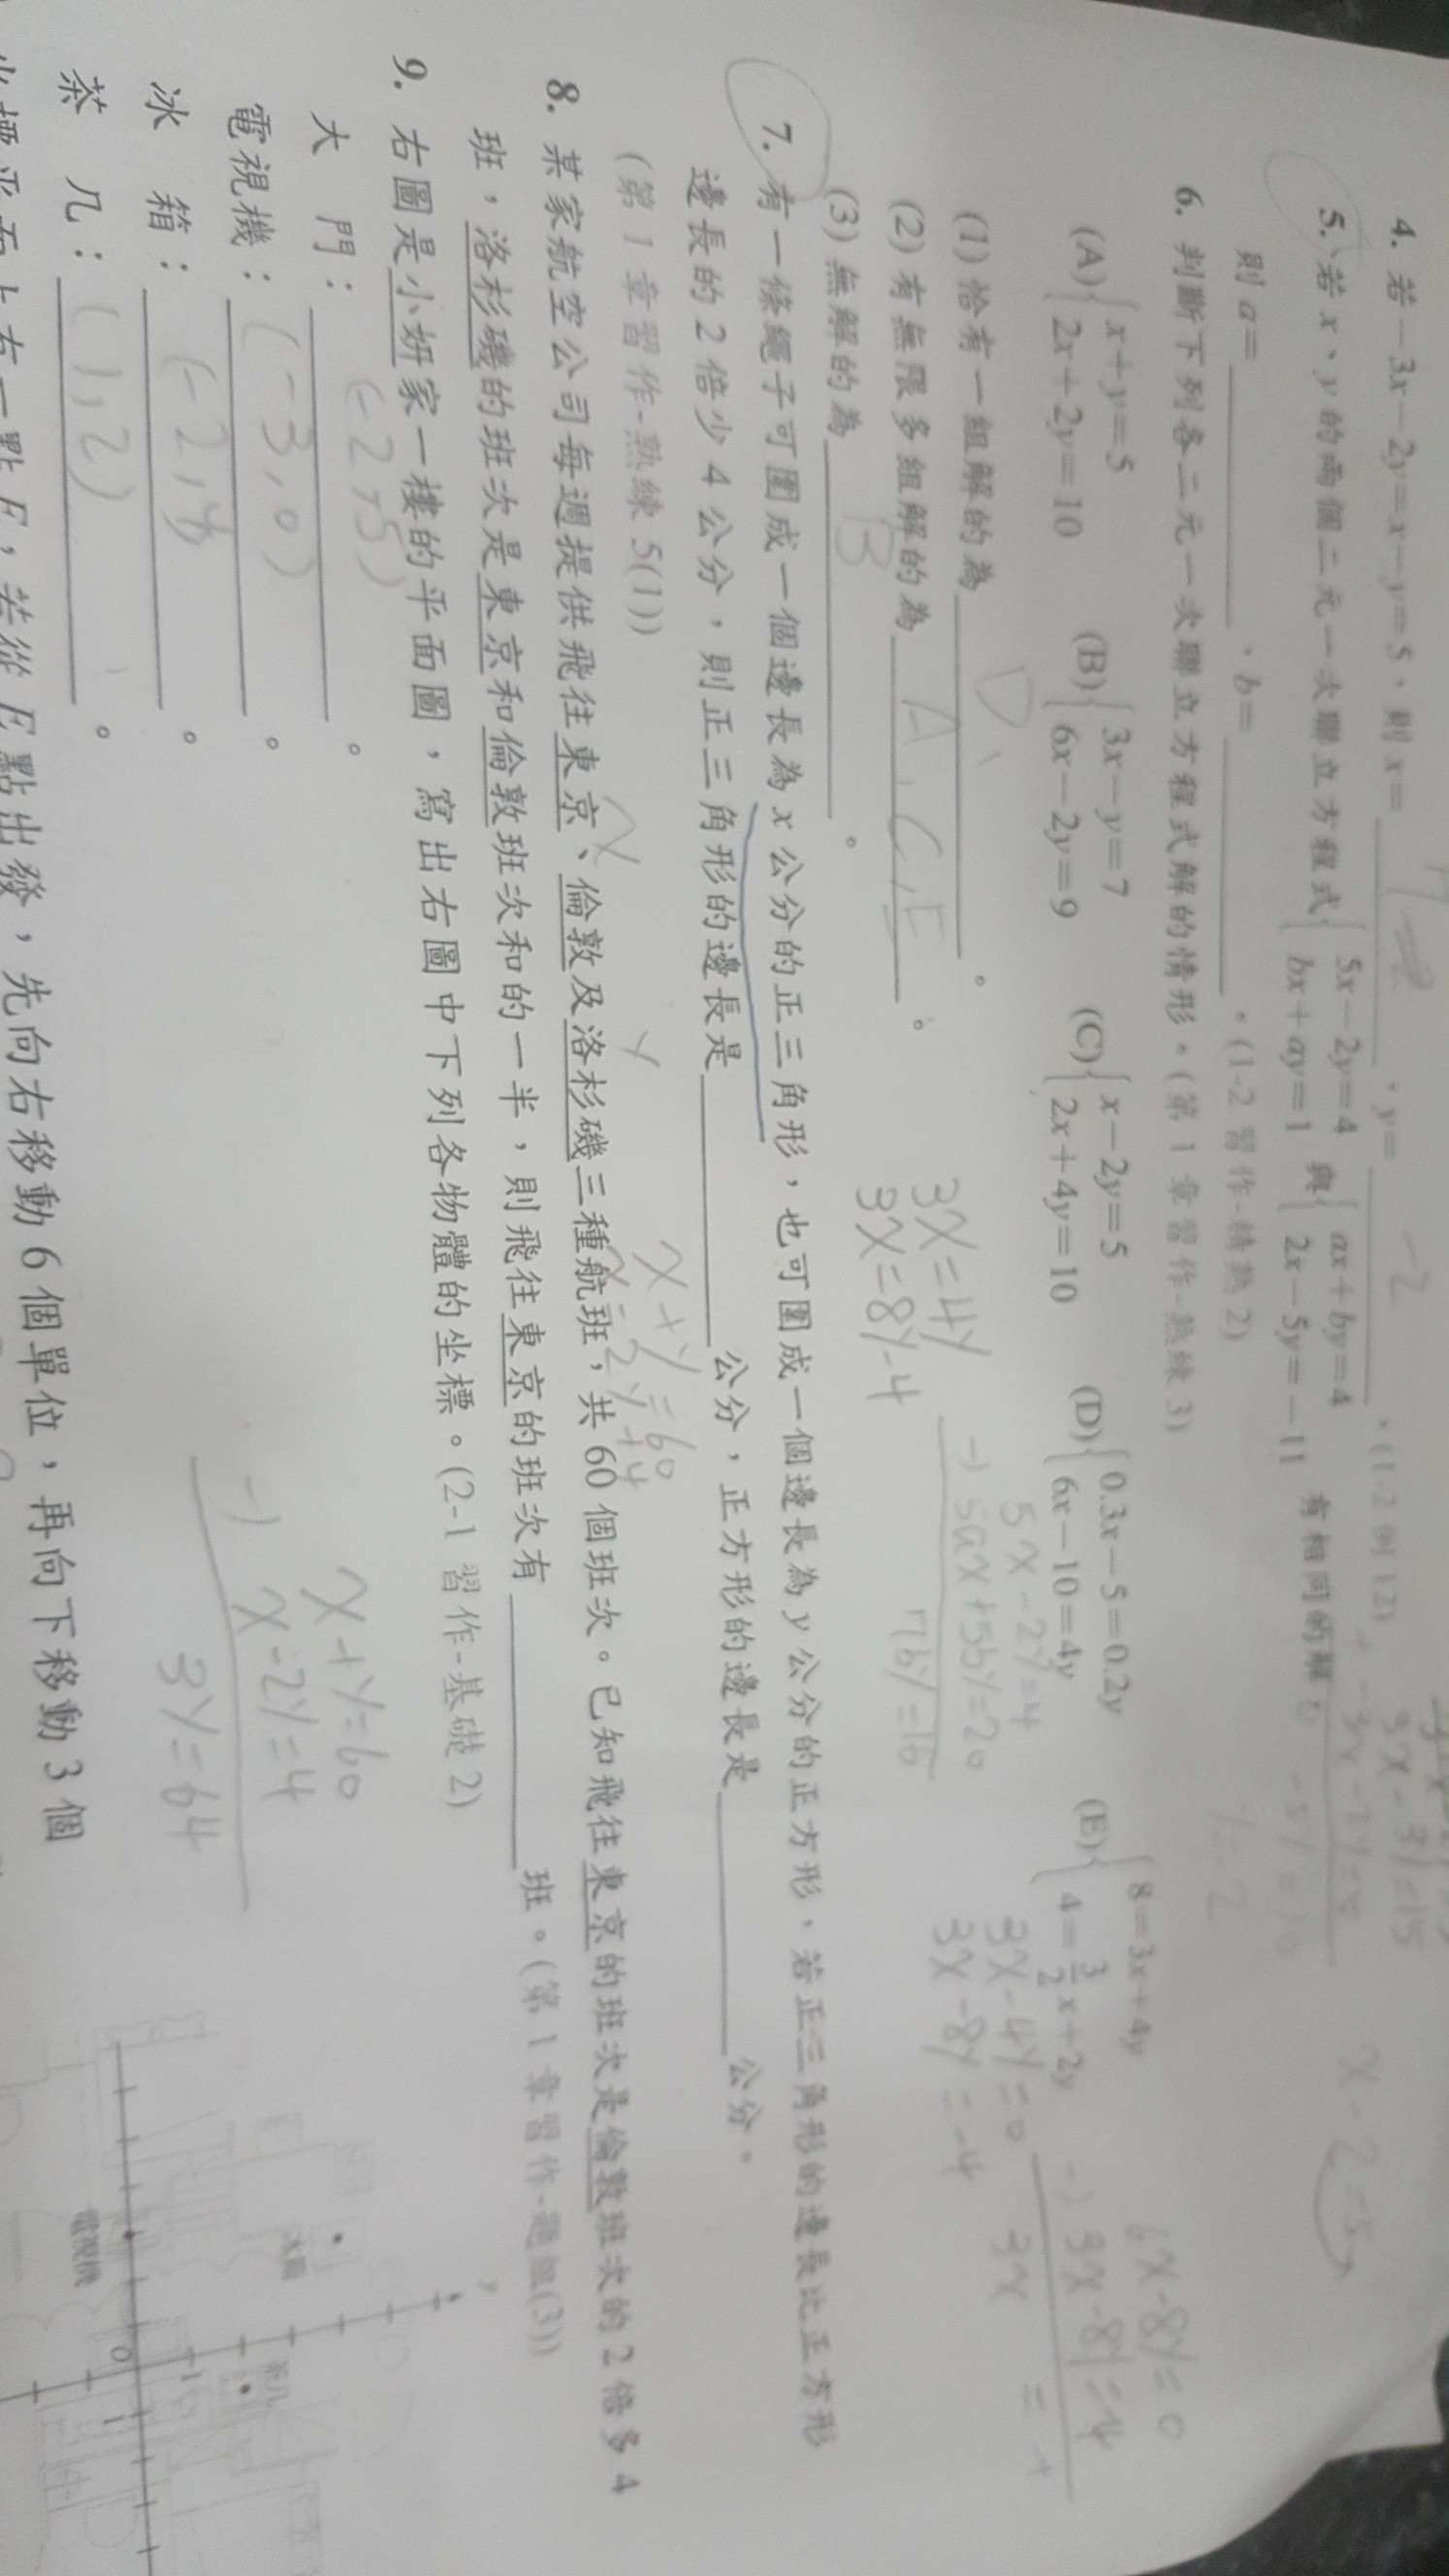 4. 若－3x－2y＝x－y＝5，則 x＝ ，y＝ －2 。(1-2 例 12)
5. 若 x、y 的兩個二元一次聯立方程式{5x－2y＝4 bx＋ay＝1 與{ax＋by＝4 2x－5y＝－11 有相同的解，
則 a＝ ，b＝ 。(1-2 習作-精熟 2)
6. 判斷下列各二元一次聯立方程式解的情形。(第 1 章習作-熟練 3)
(A){x＋y＝5 2x＋2y＝10 (B){3x－y＝7 6x－2y＝9 (C){x－2y＝5 2x＋4y＝10 (D){0.3x－5＝0.2y 6x－10＝4y (E){8＝3x＋4y 4＝3/2x＋2y
(1) 恰有一組解的為 D 。
(2) 有無限多組解的為 A, C, E 。
(3) 無解的為 B 。
5x－2y＝4
－) 5ax＋5by＝20
7by＝16
3x＝4y
3x＝8y－4
3x－4y＝0
3x－8y＝－4
6x－8y＝0
－) 3x－8y＝－4
3x ＝
7. 有一條繩子可圍成一個邊長為 x 公分的正三角形，也可圍成一個邊長為 y 公分的正方形，若正三角形的邊長比正方形
邊長的 2 倍少 4 公分，則正三角形的邊長是 公分，正方形的邊長是 公分。
(第 1 章習作-熟練 5(1))
x y
x＋y＝60
x＝2y＋4
8. 某家航空公司每週提供飛往東京、倫敦及洛杉磯三種航班，共 60 個班次。已知飛往東京的班次是倫敦班次的 2 倍多 4
班，洛杉磯的班次是東京和倫敦班次和的一半，則飛往東京的班次有 班。(第 1 章習作-題組(3))
9. 右圖是小妍家一樓的平面圖，寫出右圖中下列各物體的坐標。(2-1 習作-基礎 2)
大門： (－2,－5) 。
電視機： (－3,0) 。
冰箱： (－2,4) 。
茶几： (1,2) 。
x＋y＝60
－) x－2y＝4
3y＝64
y
冰箱
茶几
電視機
0
1
1
點 E，若從 E 點出發，先向右移動 6 個單位，再向下移動 3 個